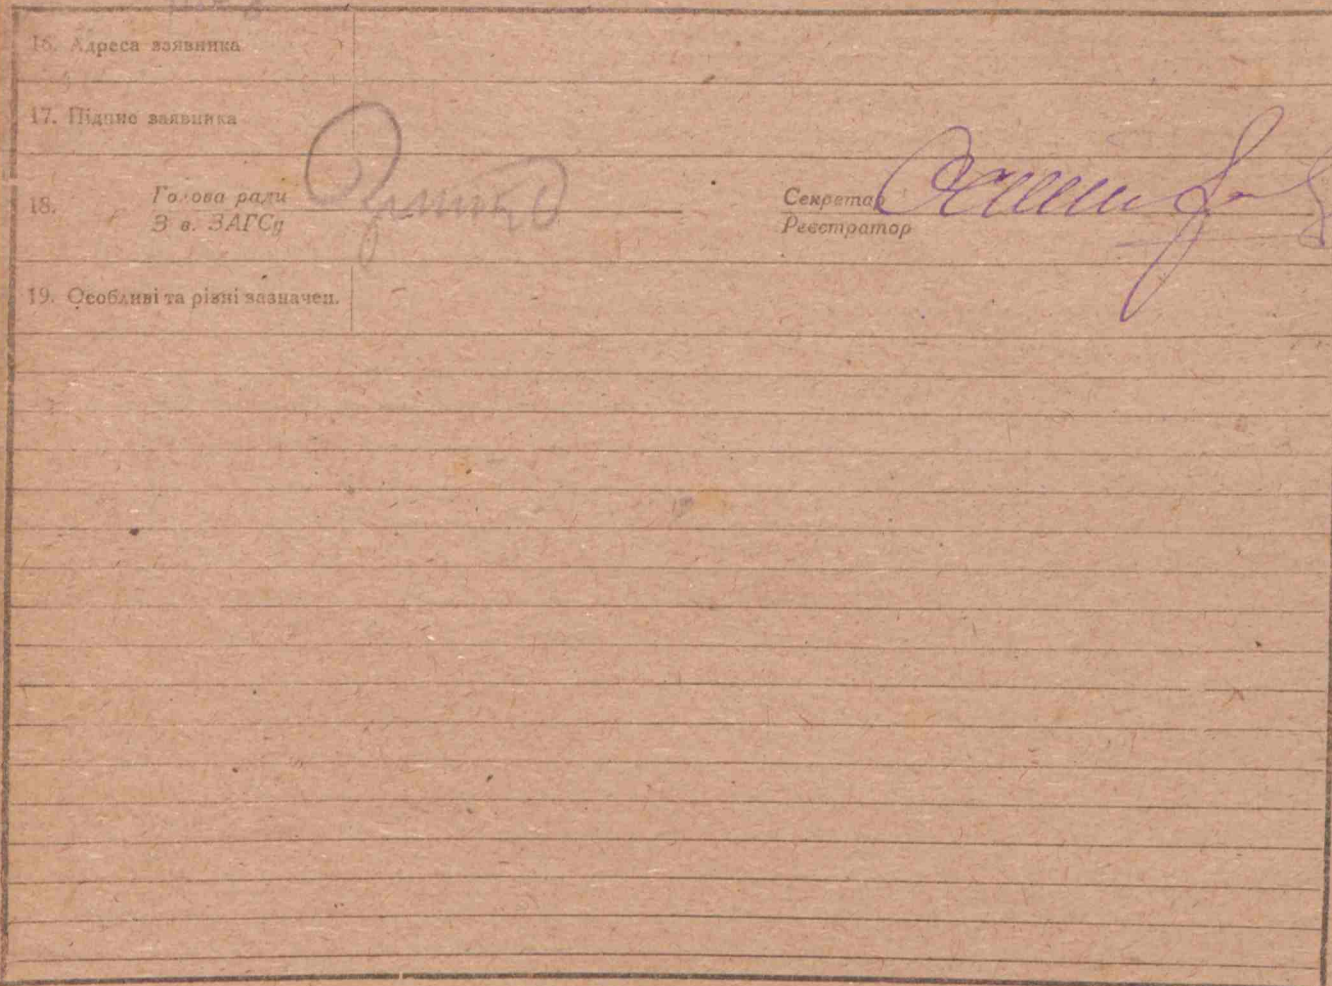 16. Адреса заявника
17. Підпис заявника
18. Голова ради
З в. ЗАГСу
Секретар
Реєстратор
19. Особливі та різні зазначен.